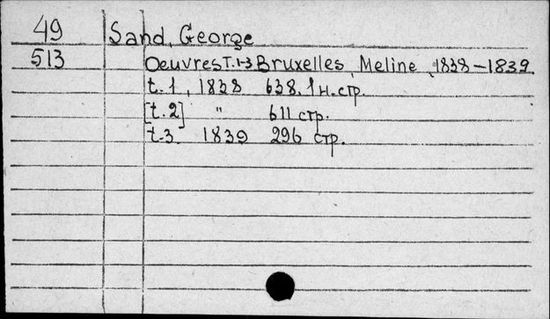 49 Sand, George
513 Oeuvres T. 1-3 Bruxelles, Meline, 1838-1839.
t. 1, 1838 638, 1 н. стр.
[t. 2] " 611 стр.
t. 3 1839 296 стр.